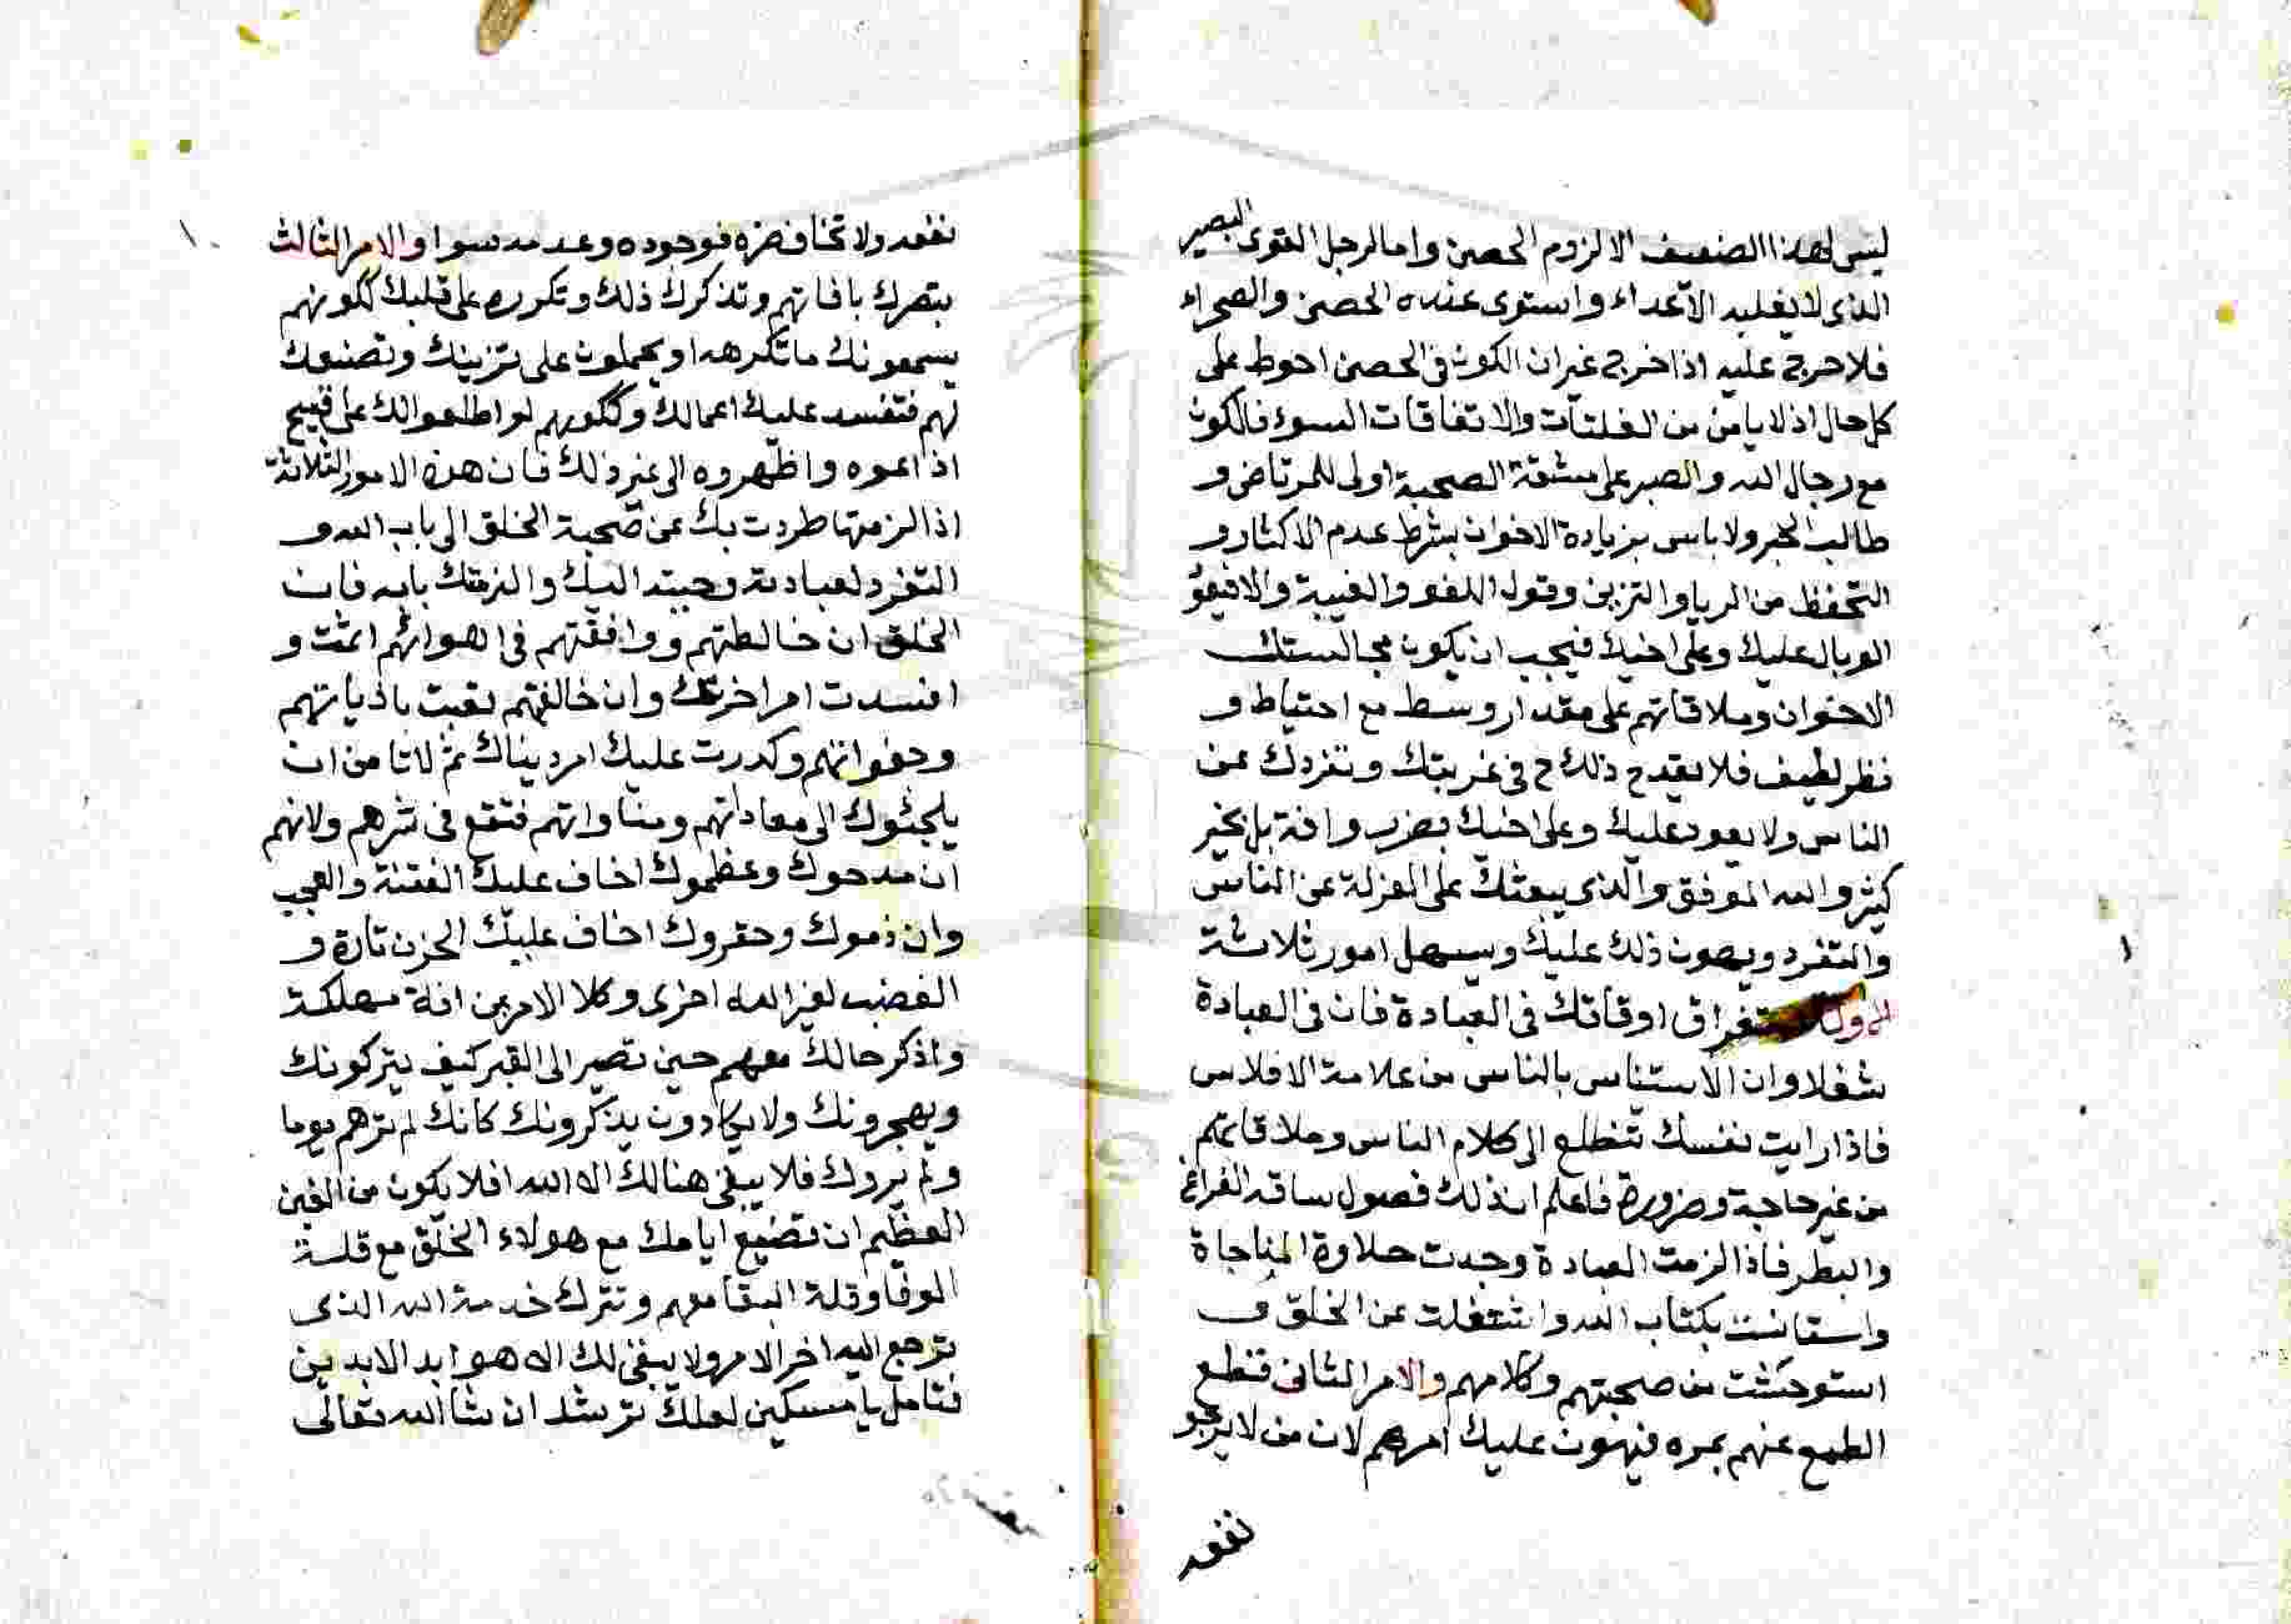 ليس لهذا الضعيف الا لزوم الحصن واما الرجل القوى البصير
الذى لا يغلبه الاعداء واستوى عنده الحصن والصحراء
فلا حرج عليه اذا خرج غير ان الكون فى الحصن احوط على
كل حال اذ لا يامن من الفلتات والاتفاقات السوء فالكون
مع رجال الله والصبر على مشقة الصحبة اولى للمرتاض و
طالب الخير ولا باس بزيادة الاخوان بشرط عدم الاكثار و
التحفظ من الريا والتزين وقول اللغو والغيبة والا فيعود
الوبال عليك وعلى اخيك فيجب ان يكون مجالستك
الاخوان وملاقاتهم على مقدار وسط مع احتياط و
نظر لطيف فلا يقدح ذلك ح فى غربتك وتفردك عن
الناس ولا يعود عليك وعلى اخيك بضرر وافة بل بخير
كثير والله الموفق والذى يبعثك على العزلة عن الناس
والتفرد ويهون ذلك عليك وسيهل امور ثلاثة
اوقاتك فى العبادة فان فى العبادة
شغلا وان الاستناس بالناس من علامة الافلاس
فاذا رايت نفسك تتطلع الى كلام الناس وملاقاتهم
من غير حاجة وضرورة فاعلم ان ذلك فصول ساقه الفراغ
والبطر فاذا لزمت العبادة وجدت حلاوة المناجاة
واستانست بكتاب الله واشتغلت عن الخلق و
استوحشت من صحبتهم وكلامهم والامر الثانى قطع
الطمع عنهم بمره فيهون عليك امرهم لان من لا يرجو
نفعه
نفعه ولا تخاف ضره فوجوده وعدمه سوا والامر الثالث
بتصرك بافاتهم وتذكرك ذلك وتكرره على قلبك لكونهم
يسمعونك ما تكرهه او يحملون على تزينك وتصنعك
لهم فتفسد عليك اعمالك ولكونهم لو اطلعوا لك على قبيح
اذاعوه واظهروه الى غير ذلك فان هذه الامور الثلاثة
اذا لزمتها طردت بك عن صحبة الخلق الى باب الله و
التفرد لعبادته وحببته اليك والزمتك بابه فان
الخلق ان خالطتهم ووافقتهم فى اهوائهم اثمت و
افسدت امر اخرتك وان خالفتهم تعبت باذياتهم
وجفواتهم وكدرت عليك امر ديناك ثم لا تامن ان
يلجئوك الى معاداتهم ومناواتهم فتقع فى شرهم ولانهم
ان مدحوك وعظموك اخاف عليك الفتنة والعجب
وان ذموك وحقروك اخاف عليك الحزن تارة و
الغضب لغير الله اخرى وكلا الامرين افة مهلكة
واذكر حالك معهم حين تصير الى القبر كيف يتركونك
ويهجرونك ولا يكادون يذكرونك كانك لم ترهم يوما
ولم يروك فلا يبقى هنالك اله الله افلا يكون من الغبن
العظيم ان تضيع ايامك مع هولاء الخلق مع قلة
الوفا وقلة البقا معهم وتترك خدمة الله الذى
ترجع اليه اخر الامر ولا يبقى لك اله هو ابد الابدين
فتامل يا مسكين لعلك ترشد ان شا الله تعالى